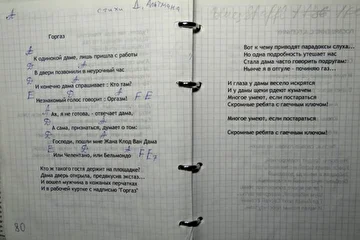 A
стихи Д. Яблчкина
Горгаз
A
К одинокой даме, лишь пришла с работы
В двери позвонили в неурочный час
И конечно дама спрашивает : Кто там!
Незнакомый голос говорит : Оргазм!
F E
Ах, я не готова, - отвечает дама,
А сама, признаться, думает о том:
Господи, пошли мне Жана Клод Ван Дама
Или Челентано, или Бельмондо
F E7
Кто ж такого гостя держит на площадке!
Дама дверь открыла, предвкусив экстаз...
И вошел мужчина в кожаных перчатках
И в рабочей куртке с надписью "Горгаз"
80
Вот к чему приводят парадоксы слуха...
Но одна подробность утешает нас
Стала дама часто говорить подругам:
Нынче я в отгуле - починяю газ...
И глаза у дамы весело искрятся
И у дамы щеки рдеют кумачем
Многое умеют, если постараться
Скромные ребята с гаечным ключом!
Многое умеют, если постараться
Скромные ребята с гаечным ключом!